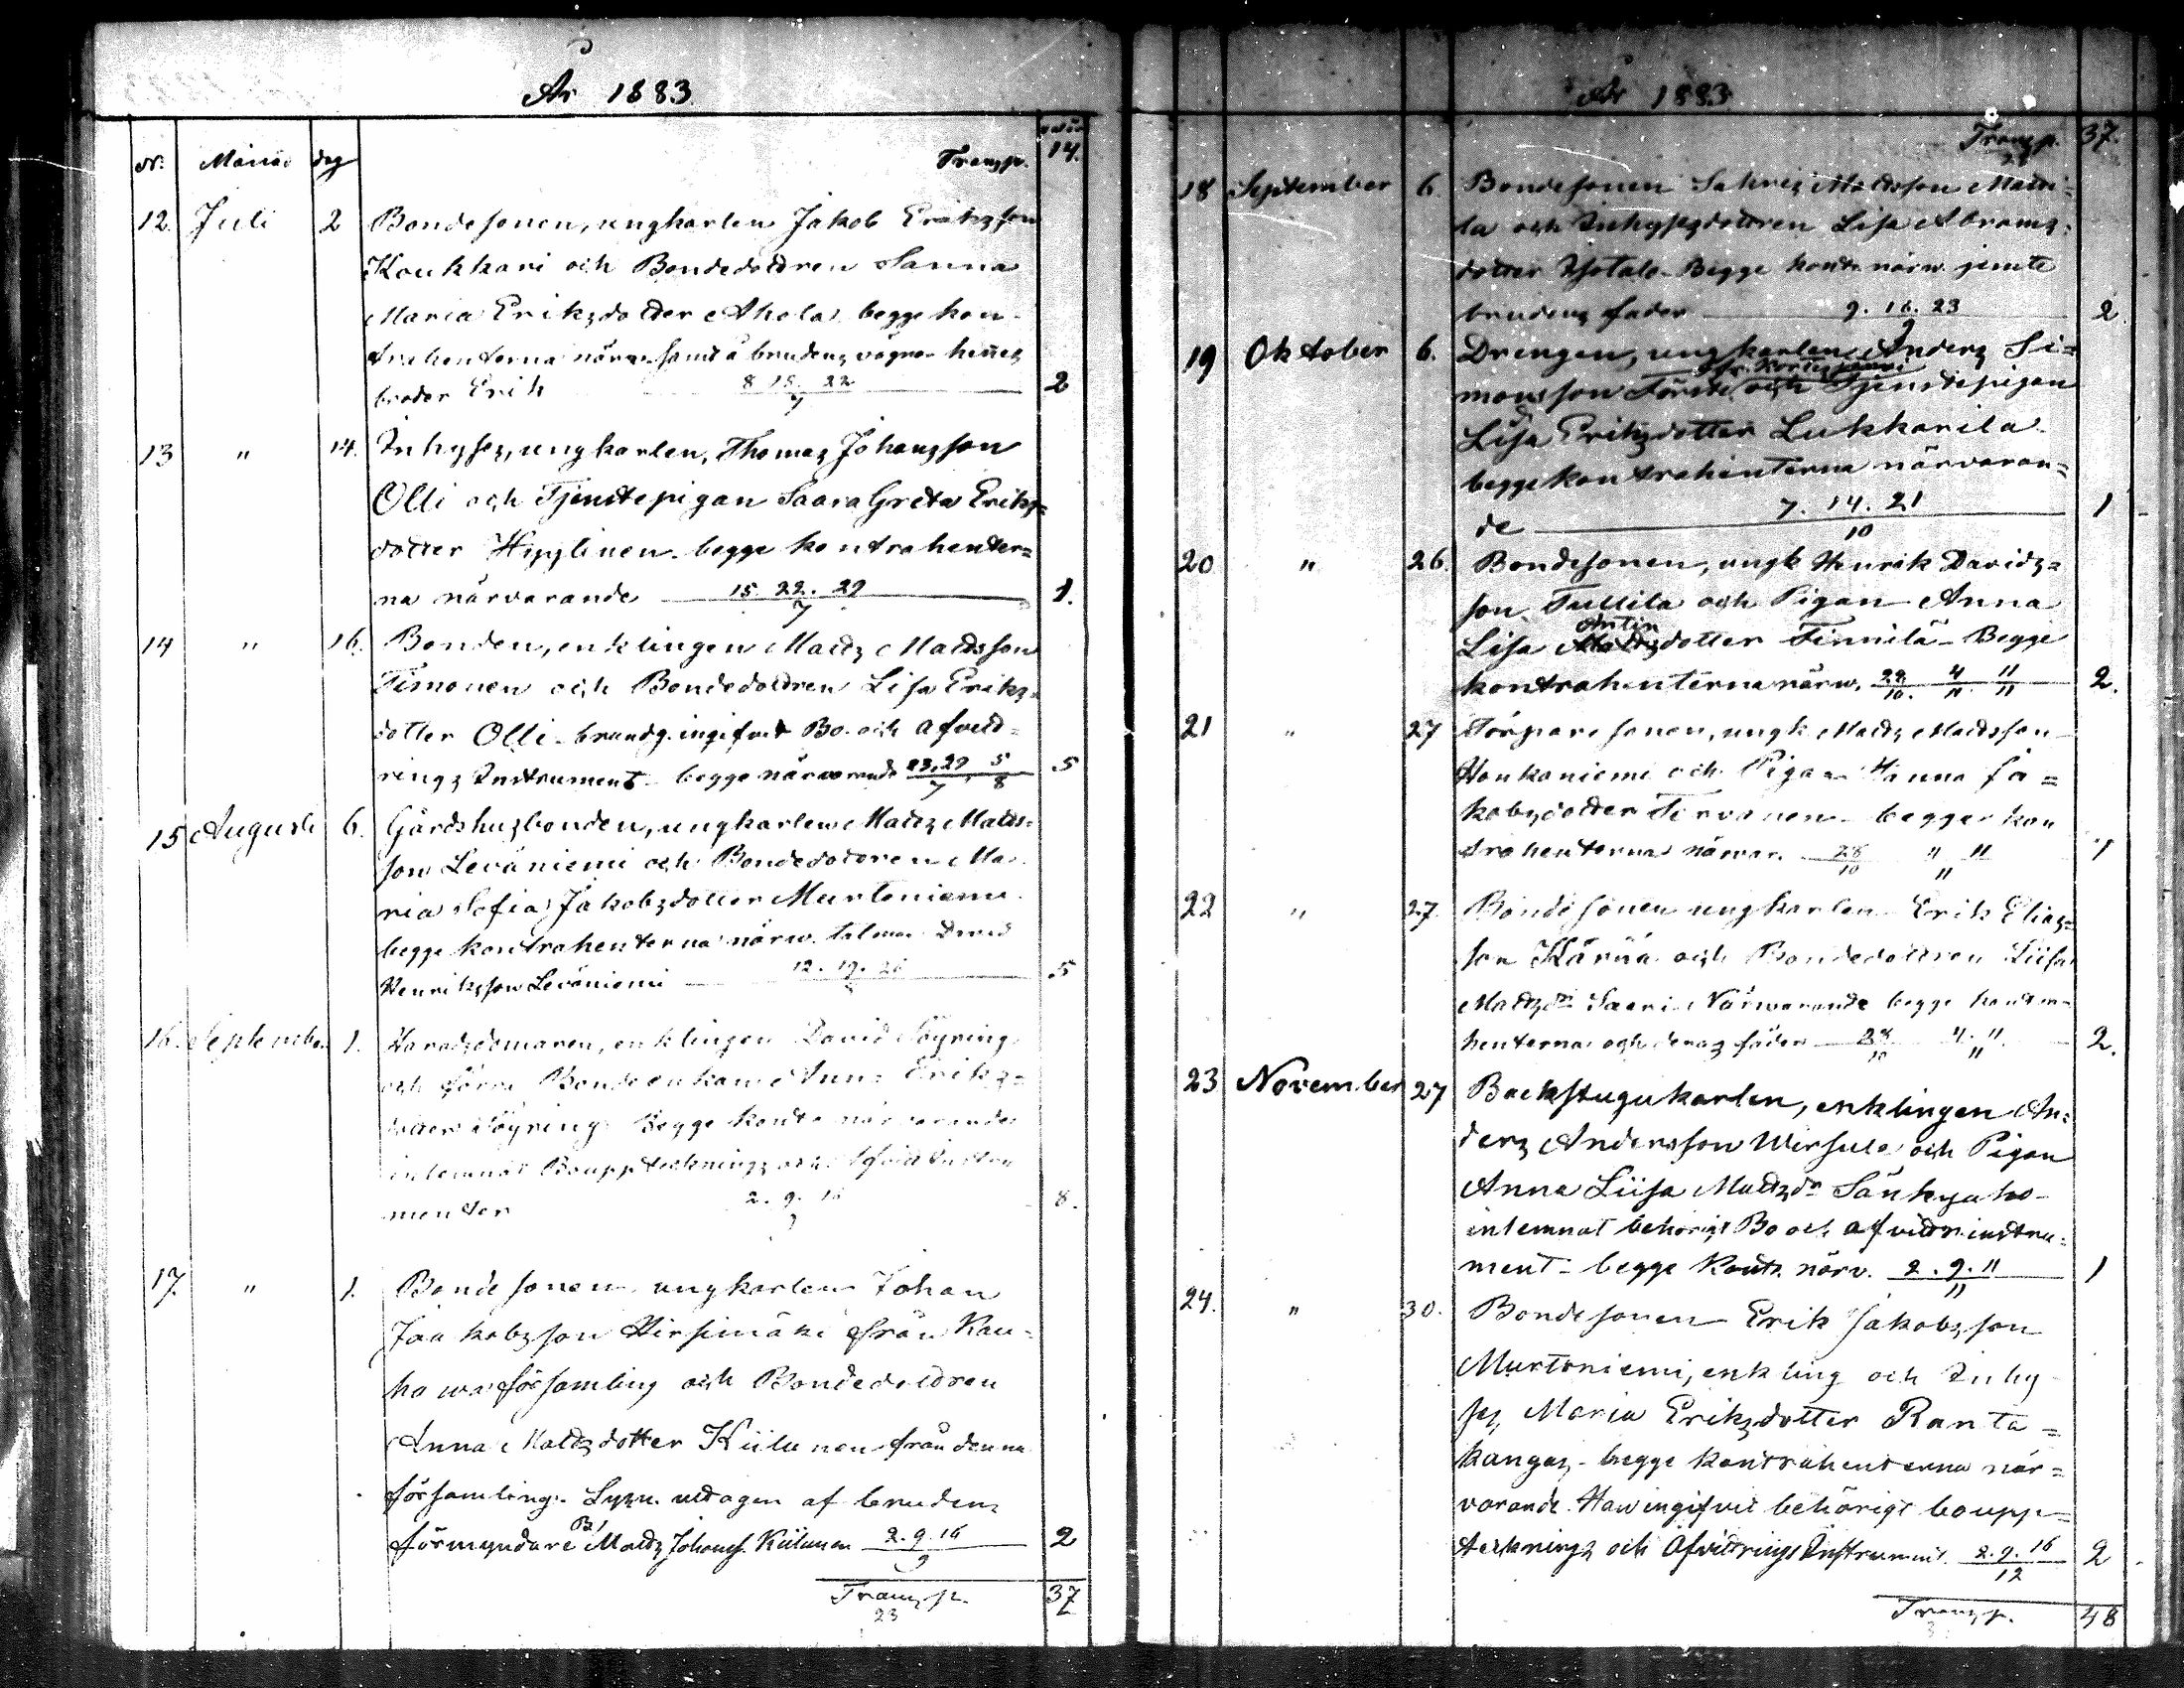 År 1883
Nr. Månad dag Transp. 14.
12. Juli 2 Bondesonen, ungkarlen Jakob Eriksson
Koukkari och Bondedottren Sanna
Maria Eriksdotter Ahola begge kon-
trahenterna närv. samt å brudens vägnar hennes
broder Erik 8. 15. 22 / 7 2
13 " 14. Inhyses, ungkarlen, Thomas Johansson
Olli och Tjenstepigan Saara Greta Eriks=
dotter Hyylinen begge kontrahenter=
na närvarande 15. 22. 29 / 7 1.
14 " 16. Bonden, enklingen Matts Mattsson
Timonen och Bondedottren Lisa Eriks=
dotter Olli - brudg. ingifvit Bo- och afvitt=
rings Instrument - begge närvarande 23. 29 / 7 5 / 8 5
15 Augusti 6. Gårdshusbonden, ungkarlen Matts Matts=
son Leväniemi och Bondedottren Ma-
ria Sofia Jakobsdotter Murtoniemi
begge kontrahenterna närv. talman David
Henriksson Leväniemi 12. 19. 26 5
16. September 1. Häradsdomaren, enklingen David Töyring
och förra Bondeenkan Anna Eriks=
dotter Töyring Begge kontr. närvarande
inlemnat Bouppteknings och Afvitt. Instru
menter 2. 9. 16 / 9 8.
17. " 1. Bondesonen ungkarlen Johan
Jaakobsson Hirsimäki från Kau=
hawa församling och Bondedottren
Anna Mattsdotter Kiilunen från denna
församling. Lysn. uttagen af brudens
förmyndare B/ Matts Johanss. Kiilunen 2. 9. 16 / 9 2
Transp. 37
23
År 1883
Transp. 37.
23
18 September 6. Bondesonen Sakris Mattsson Matti=
la och Inhysesdottren Lisa Abrams=
dotter Isotalo - Begge kontr. närv. jemte
brudens fader 9. 16. 23 2.
19 Oktober 6. Drengen, ungkarlen Anders Si=
monsson och Tjenstepigan
Lisa Eriksdotter Lukkarila
begge kontrahenterna närvaran=
de 7. 14. 21 / 10 1
20 " 26. Bondesonen, ungk. Henrik Davids=
son Tullila och Pigan Anna
Antin
Lisa Mattsdotter Finnilä - Begge
kontrahenterna närv. 28 / 10. 4 / 11. 11 / 11 2.
21 " 27 Torparesonen, ungk. Matts Mattsson
Honkaniemi och Pigan Hanna Ja=
kobsdotter Tervonen - begge kon
trahenterna närvar. 28 / 10 4 11 / 11 1
22 " 27. Bondesonen ungkarlen Erik Elias=
son Kärnä och Bondedottren Liisa
Mattsdr Saari Närwarande begge kontra-
henterna och deras fäder 28 / 10 4. 11. / 11 2.
23 November 27 Backstugukarlen, enklingen An=
ders Andersson Wirsula och Pigan
Anna Liisa Mattsdr Sänkyaho -
inlemnat behörigt Bo och afvittr. instru=
ment - begge kontr. närv. 2. 9. 11 / 11 1
24. " 30. Bondesonen Erik Jakobsson
Murtoniemi, enkling och Inhy
ses, Maria Eriksdotter Ranta=
kangas - begge kontrahenterna när=
varande. Han ingifvit behörigt boupp=
tecknings och Afvittrings Instrument 2. 9. 16 / 12 2
Transp. 48